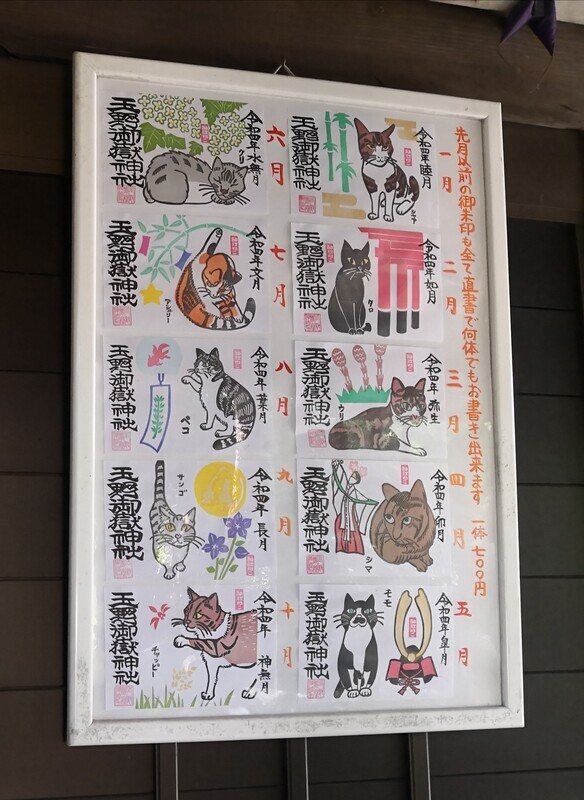 先月以前の御朱印も全て直書で何体でもお書き出来ます 一体 七〇〇円
一月
令和四年 睦月
シマ
玉野御嶽神社
二月
令和四年 如月
クロ
玉野御嶽神社
三月
令和四年 弥生
ウリ
玉野御嶽神社
四月
令和四年 卯月
シマ
玉野御嶽神社
五月
令和四年 皐月
モモ
玉野御嶽神社
六月
令和四年 水無月
クリ
玉野御嶽神社
七月
令和四年 文月
玉野御嶽神社
八月
令和四年 葉月
ペコ
玉野御嶽神社
九月
令和四年 長月
サンゴ
玉野御嶽神社
十月
令和四年 神無月
チャッピー
玉野御嶽神社